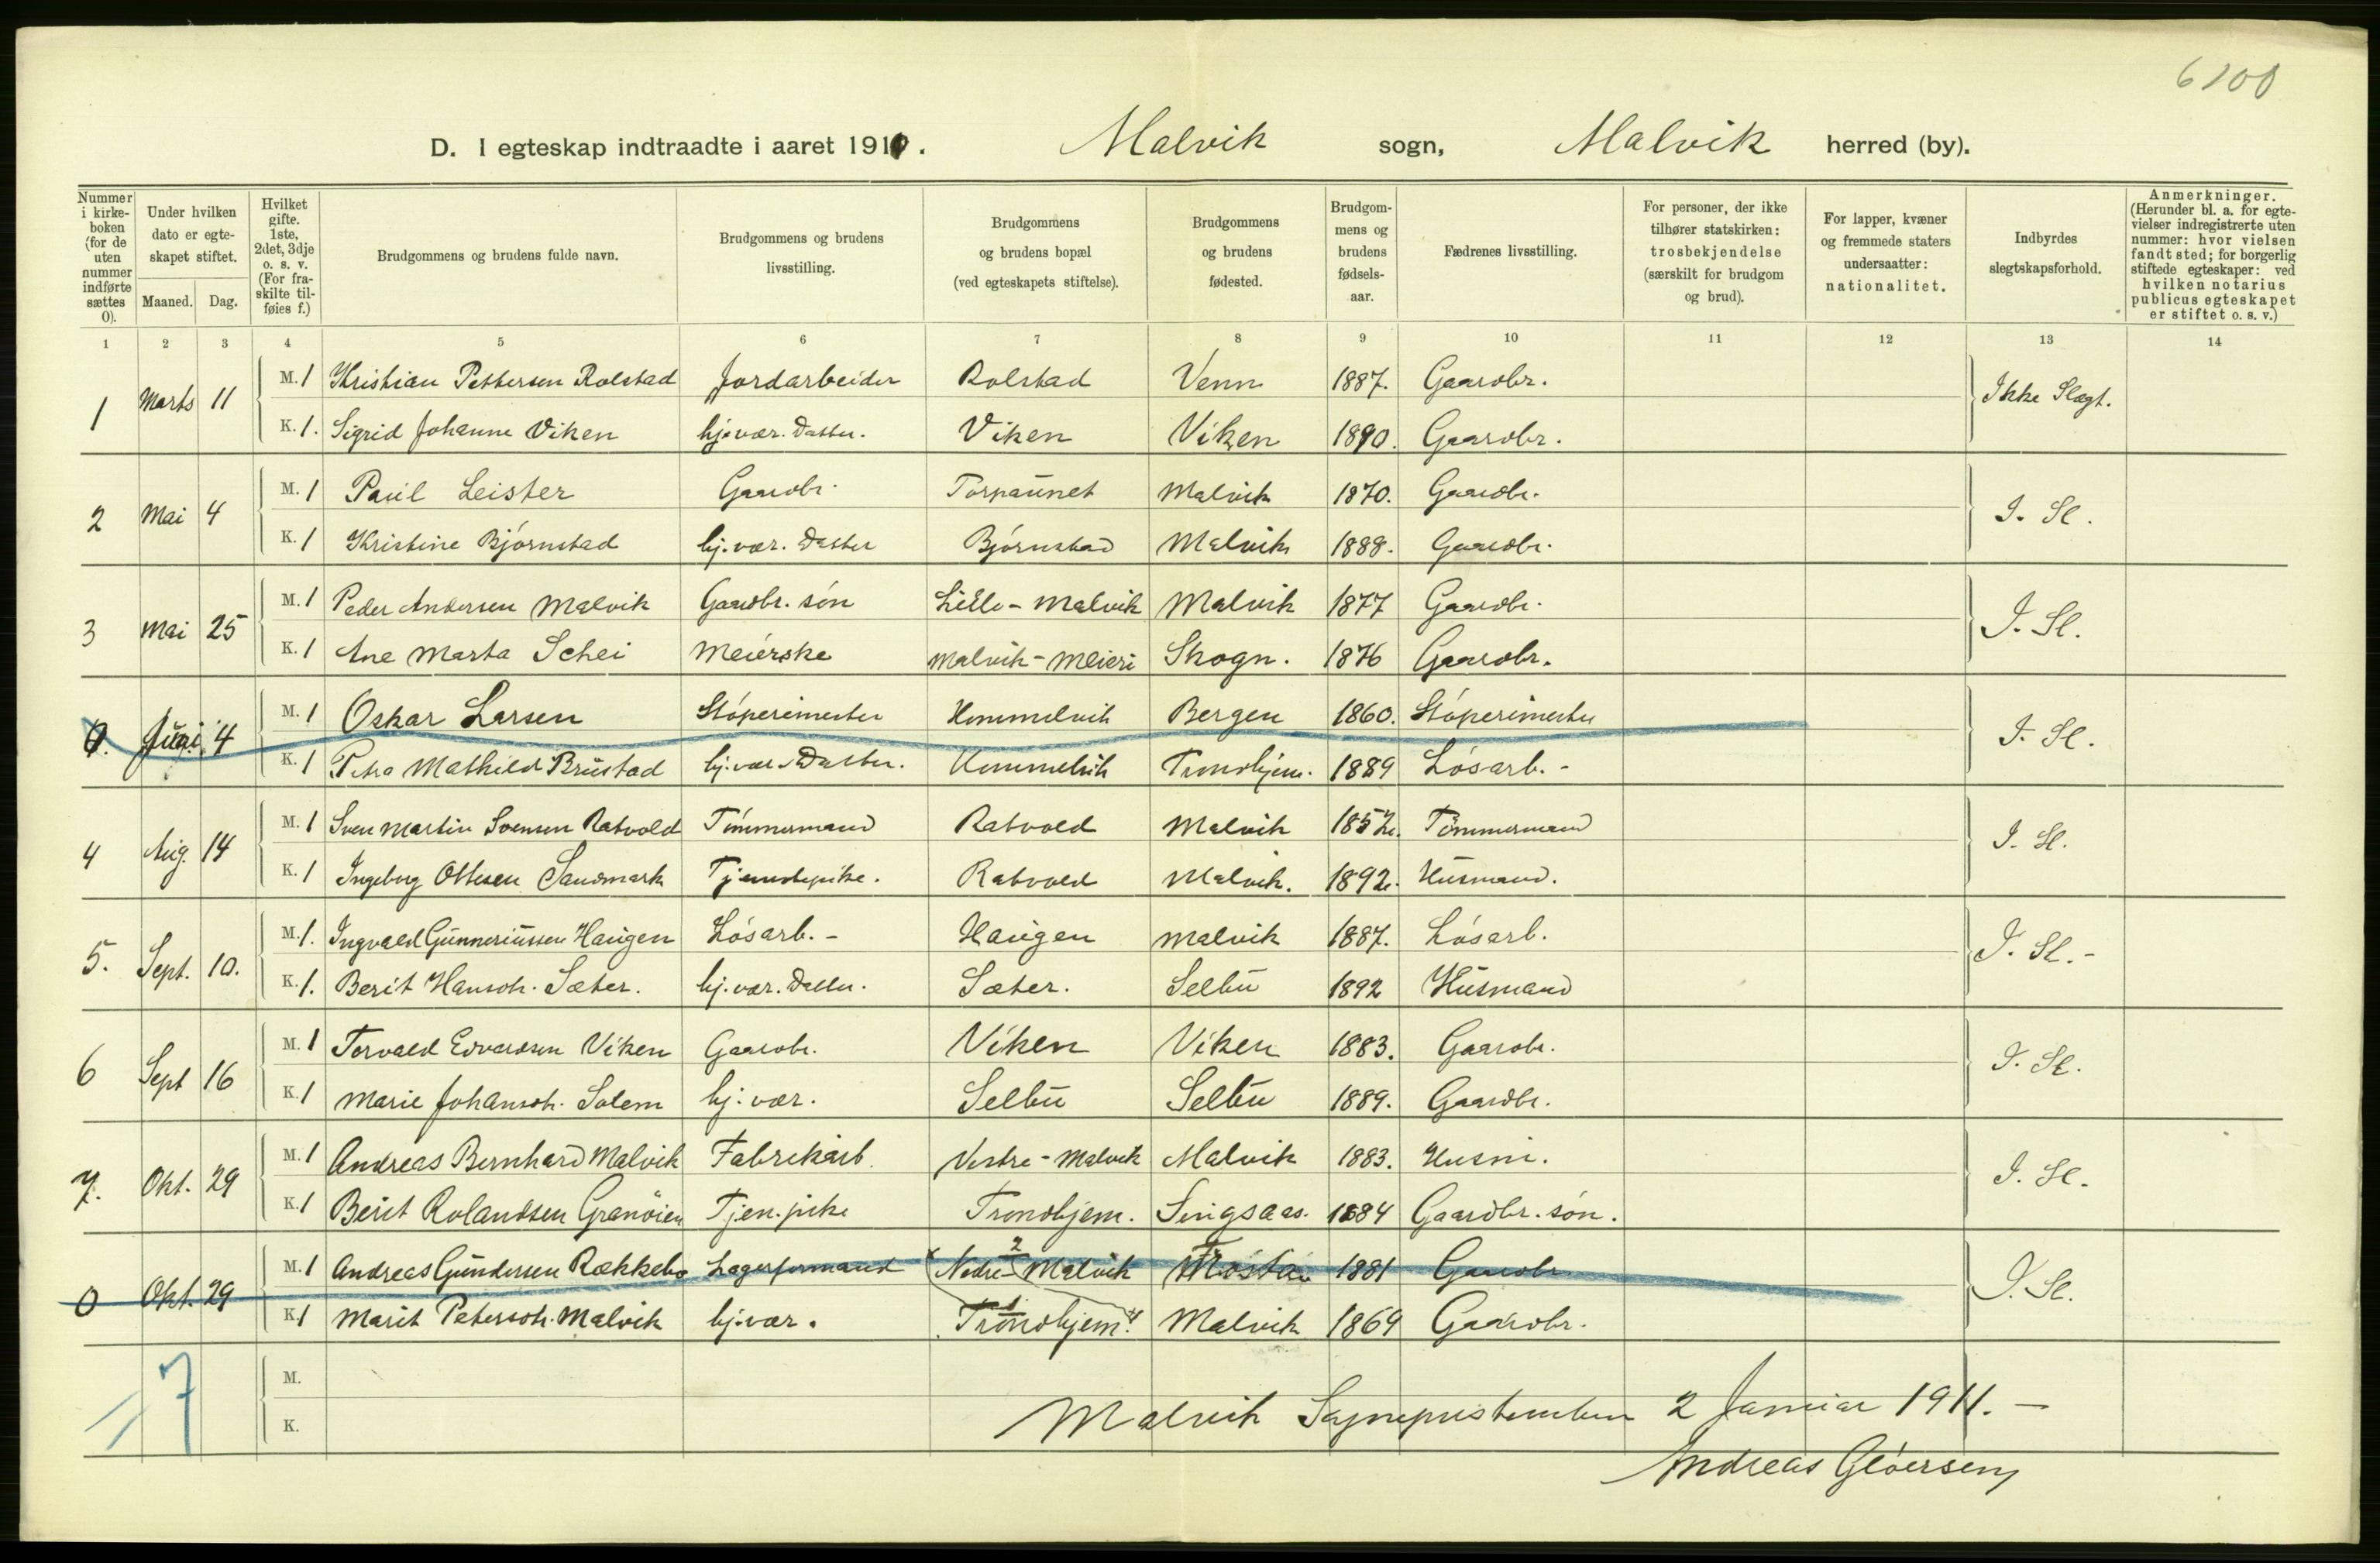 6100
D. I egteskap indtraadte i aaret 1910. Malvik sogn, Malvik herred (by).
Nummer i kirke-boken (for de uten nummer indførte sættes 0).
Under hvilken dato er egte-skapet stiftet.
Maaned. Dag.
Hvilket gifte. 1ste, 2det, 3dje o. s. v. (For fra-skilte til-føies f.)
Brudgommens og brudens fulde navn.
Brudgommens og brudens livsstilling.
Brudgommens og brudens bopæl (ved egteskapets stiftelse).
Brudgommens og brudens fødested.
Brudgom-mens og brudens fødsels-aar.
Fædrenes livsstilling.
For personer, der ikke tilhører statskirken: trosbekjendelse (særskilt for brudgom og brud).
For lapper, kvæner og fremmede staters undersaatter: nationalitet.
Indbyrdes slegtskapsforhold.
Anmerkninger. (Herunder bl. a. for egte-vielser indregistrerte uten nummer: hvor vielsen fandt sted; for borgerlig stiftede egteskaper: ved hvilken notarius publicus egteskapet er stiftet o. s. v.)
1 2 3 4 5 6 7 8 9 10 11 12 13 14
1 Marts 11 M. 1 Kristian Pettersen Rolstad Jordarbeider Rolstad Venn 1887. Gaardbr. Ikke Slægt.
K. 1. Sigrid Johanne Viken hj.vær. Datter. Viken Viken 1890. Gaardbr.
2 Mai 4 M. 1 Paul Leister Gaardbr. Torpaunet Malvik 1870. Gaardbr. I. Sl.
K. 1 Kristine Bjórnstad hj.vær. Datter Bjórnstad Malvik 1888. Gaardbr.
3 Mai 25 M. 1 Peder Andersen Malvik Gaardbr. són Lille-Malvik Malvik 1877 Gaardbr. I. Sl.
K. 1 Ane Marta Schei Meierske Malvik-Meieri Skogn. 1876 Gaardbr.
0. Juni 4 M. 1 Oskar Larsen Stóperimester Hommelvik Bergen 1860. Stóperimester I. Sl.
K. 1 Petra Mathilde Brustad hj.vær. Datter. Hommelvik Trondhjem. 1889 Lósarb. -
4 Aug. 14 M. 1 Sven Martin Svensen Ratvold Tómmermand Ratvold Malvik 1852. Tómmermand I. Sl.
K. 1 Ingeborg Ottesen Sandmark Tjenstepike. Ratvold Malvik. 1892. Husmand.
5. Sept. 10. M. 1. Ingvald Gunneriussen Haugen Lósarb. - Haugen Malvik 1887. Lósarb. I. Sl. -
K. 1. Berit Hansdt. Sæter. hj.vær. Datter. Sæter. Selbu 1892 Husmand
6 Sept 16 M. 1 Torvald Edvardsen Viken Gaardbr. Viken Viken 1883. Gaardbr. I. Sl.
K. 1 Marie Johansdt. Solem hj.vær. Selbu Selbu 1889. Gaardbr.
7. Okt. 29 M. 1 Andreas Bernhard Malvik Fabrikarb. Vestre-Malvik Malvik 1883. Husm. I. Sl.
K. 1 Berit Rolandsen Granöien Tjen.pike Trondhjem. Singsaas. 1884 Gaardbr. són.
0 Okt. 29 M. 1 Andreas Gundersen Rækkebo Lagerformand Nedre-Malvik Frosta 1881 Gaardbr I. Sl.
K. 1 Marit Petersdt. Malvik hj.vær. Trondhjem. Malvik 1869 Gaardbr.
17
M.
K.
Malvik Sogneprestembede 2 Januar 1911. -
Andreas Glóersen